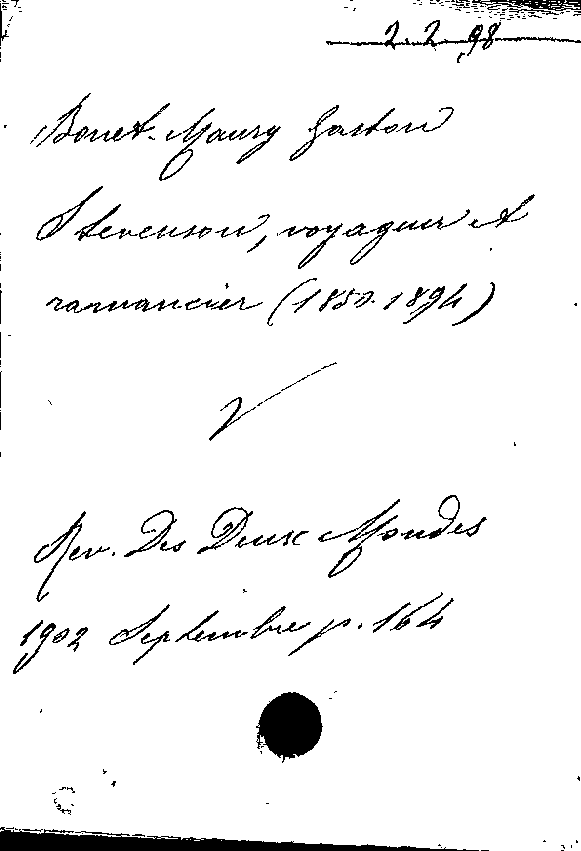 2.2.98
Bonet-Maury Gaston
Stevenson, voyageur et
romancier (1850-1894)
Rev. Des Deux Mondes
1902 Septembre p. 164